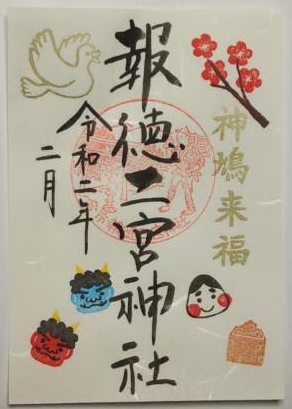 神鳩来福
報徳二宮神社
令和二年
二月